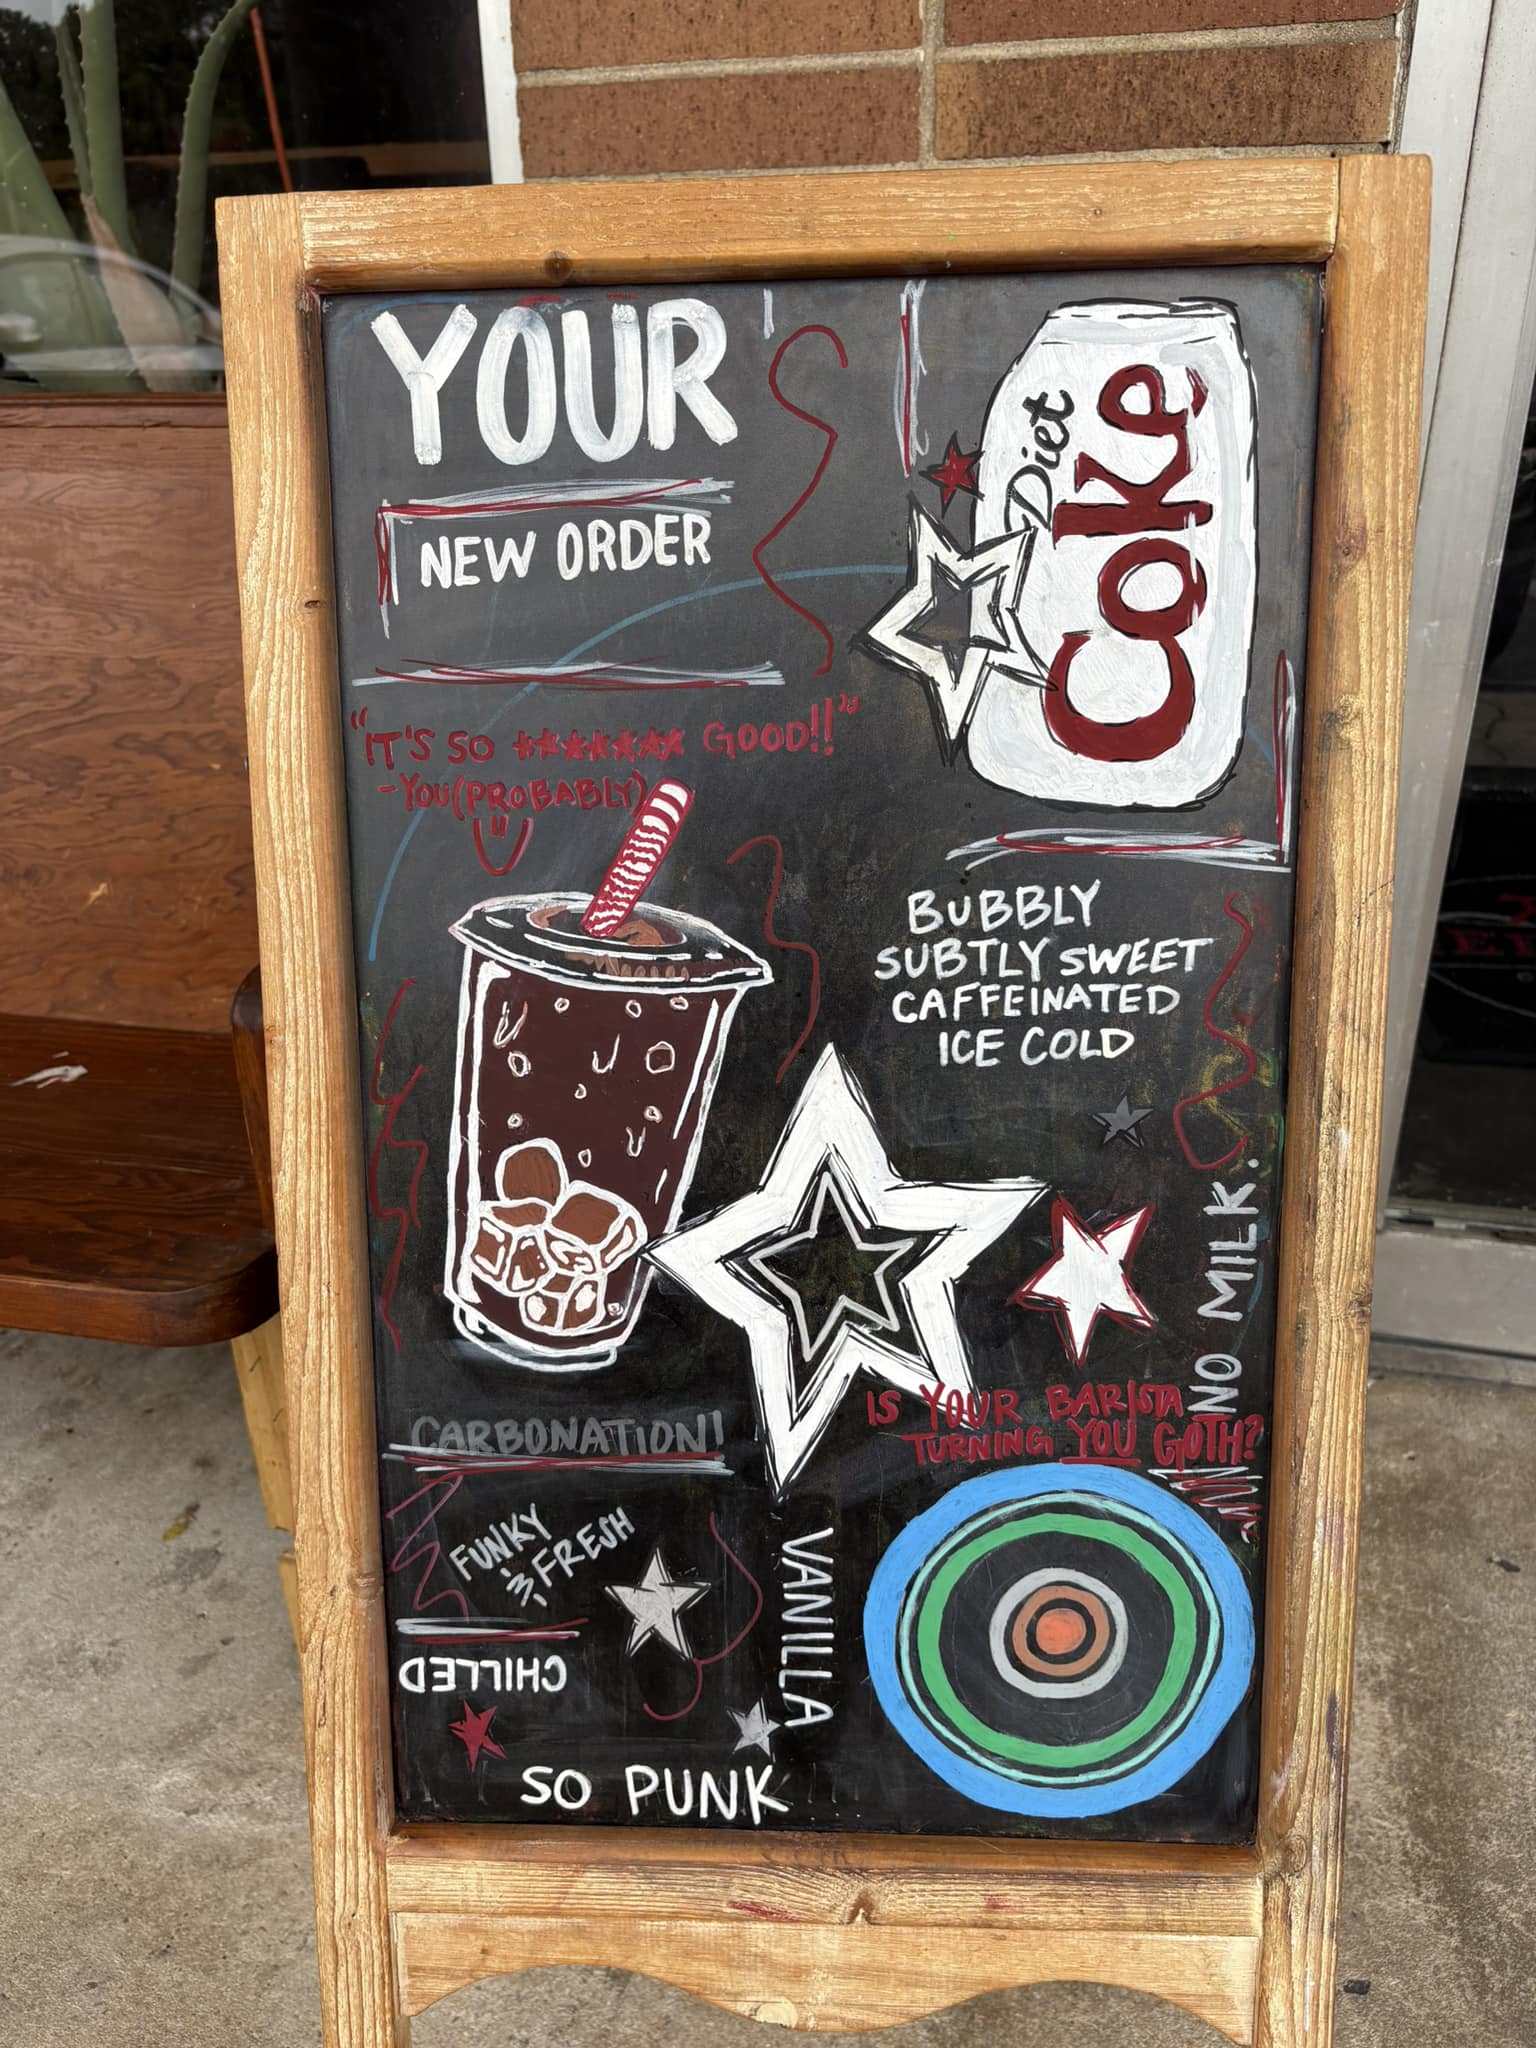 YOUR
NEW ORDER
Diet
Coke
"IT'S SO ******* GOOD!!"
-YOU (PROBABLY)
BUBBLY
SUBTLY SWEET
CAFFEINATED
ICE COLD
NO MILK.
IS YOUR BARISTA
TURNING YOU GOTH?
CARBONATION!
FUNKY
& FRESH
CHILLED
VANILLA
SO PUNK